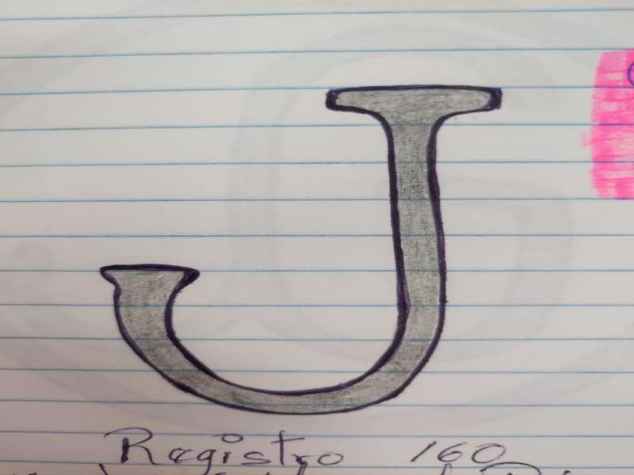 J
Registro 160